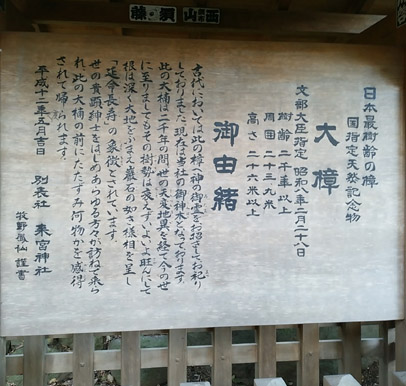 日本最樹齢の樟
国指定天然記念物
大樟
文部大臣指定 昭和八年二月二十八日
樹齢 二千年以上
周囲 二十三九米
高さ 二十六米以上
御由緒
古代においては此の樟へ神の御霊をお招きしてお祀り
しておりました 現在は当社の御神木となっております
此の大楠は二千年の間世の天変地異を経て今の世
に至りましてもその樹勢は衰えずいよいよ旺んにして
根は深く大地をふまえ巌石の如き様相を呈し
「延命長寿」の象徴とされています
世の貴顕紳士をはじめあらゆる方々が訪ねて来ら
れ此の大楠の前にたたずみ何物かを感得
されて帰られます
平成十二年五月吉日
別表社 来宮神社
牧野 仙 謹書